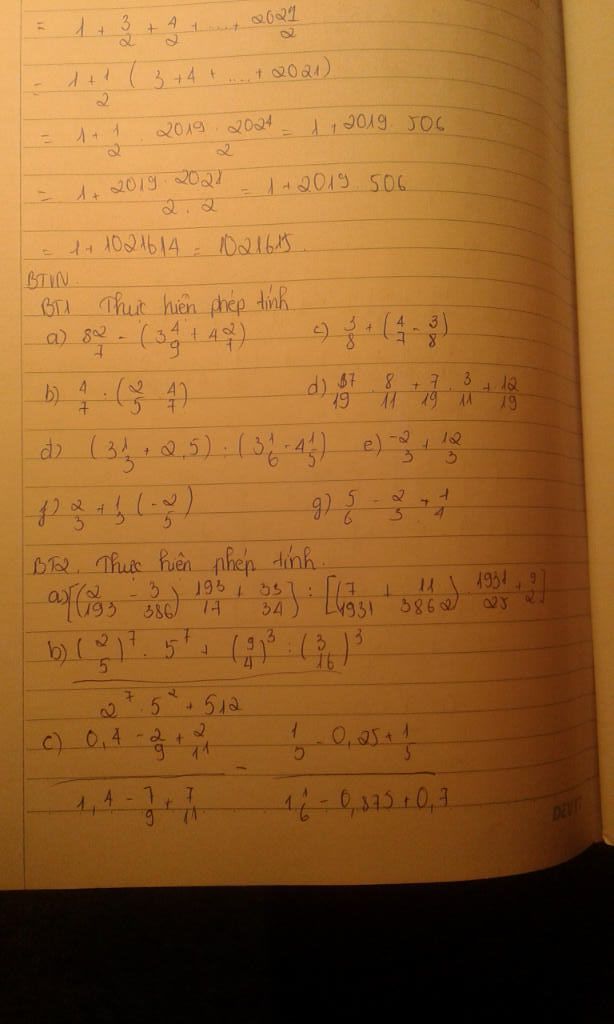 = 1 + 3/2 + 4/2 + .... + 2021/2
= 1 + 1/2 ( 3 + 4 + .... + 2021)
= 1 + 1/2 . 2019 . 2021/2 = 1 + 2019 . 506
= 1 + 2019 . 2021/2 . 2 = 1 + 2019 . 506
= 1 + 1021614 = 1021615.
BTVN.
BT1 Thực hiện phép tính
a) 8 2/7 - (3 4/9 + 4 2/7) c) 3/8 + (4/7 - 3/8)
b) 4/7 . (2/5 . 4/7) d) 7/19 . 8/11 + 7/19 . 3/11 + 12/19
d) (3 1/3 + 2,5) : (3 1/6 - 4 1/5) e) -2/3 + 12/3
f) 2/3 + 1/3 (-2/5) g) 5/6 - 2/3 + 1/4
BT2. Thực hiện phép tính.
a) [(2/193 - 3/386) 193/17 + 33/34] : [(7/1931 + 11/3862) . 1931/25 + 9/2]
b) (2/5)^7 . 5^7 + (9/4)^3 : (3/16)^3
2^7 . 5^2 + 512
c) 0,4 - 2/9 + 2/11 1/3 - 0,25 + 1/5
-
1,4 - 7/9 + 7/11 1 1/6 - 0,875 + 0,7